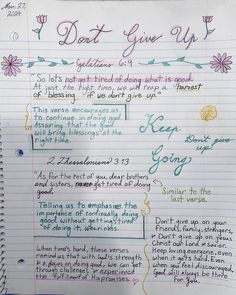 Nov. 27,
2024
Don't Give Up
Galatians 6:9
"So let's not get tired of doing what is good.
At just the right time, we will reap a harvest
of blessing if we don't give up"
This verse encourages us
to continue in doing good.
Assuring that the Lord
will bring blessings at the
right time.
Keep
Don't give
up!
Going
2 Thessalonians 3:13
"As for the rest of you, dear brothers
and sisters, never get tired of doing
good.
Similar to the
last verse.
Telling us to emphasize the
importance of continually doing
good without getting tired
of doing it, weariness.
Don't give up on your
friends, family, strangers,
Don't give up on Jesus
Christ our Lord & Savior.
Keep being awesome, even
when it gets hard. Even
when you feel discouraged,
God will always be there
For you.
When time's hard, these verses
remind us that with God's strength
& a focus on doing good, we can get
through challenges & experience
the fulfillment of His promises.